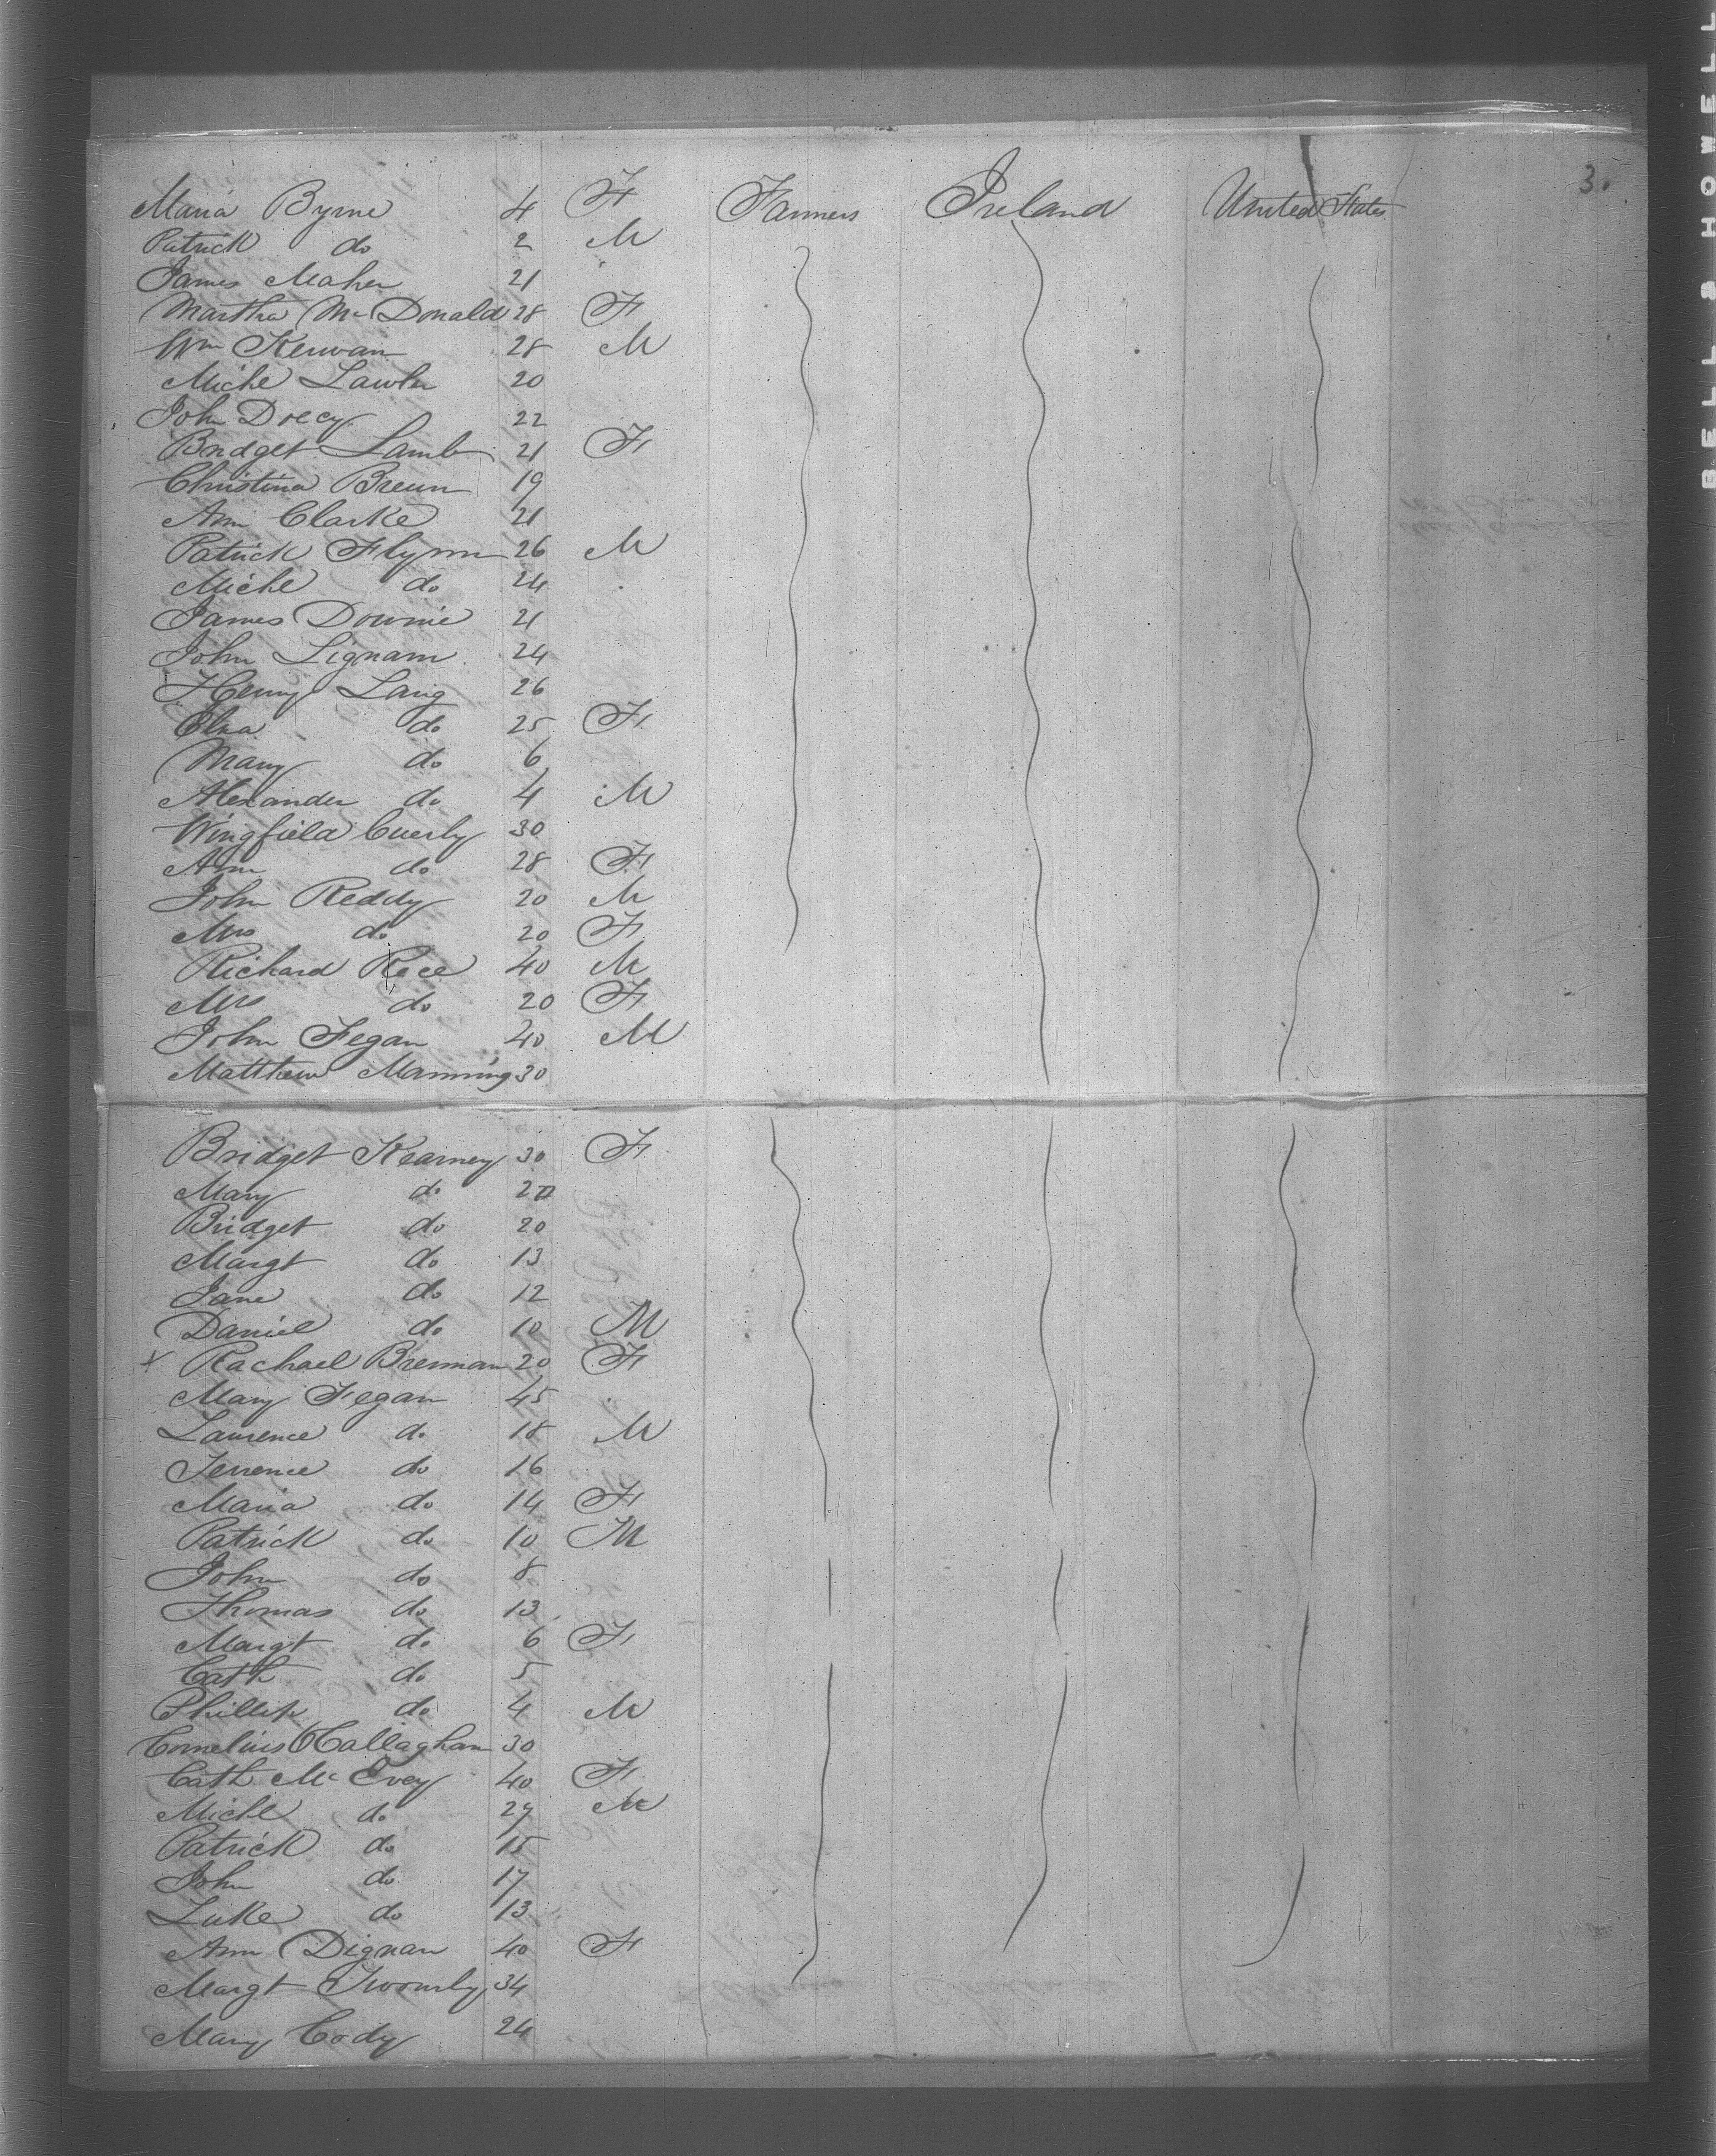 3.
Maria Byrne 4 F Farmers Ireland United States
Patrick do 2 M
James Maher 21 "
Martha McDonald 28 F
Wm Kerwan 28 M
Michl Lawler 20
John Docey 22
Bridget Lamb 21 F
Christina Breun 19
Ann Clarke 21
Patrick Flynn 26 M
Michl do 24
James Downie 21
John Lignam 24
Henry Lang 26
Eliza do 25 F
Mary do 6
Alexander do 4 M
Wingfield Cuerly 30
Ann do 28 F
John Reddy 20 M
Mrs do 20 F
Richard Race 40 M
Mrs do 20 F
John Fegan 40 M
Matthew Manning 30
Bridget Kearney 30 F
Mary do
Bridget do 20
Margt do 13
Jane do 12
Daniel do 10 M
x Rachael Brennan 20 F
Mary Fegan 45
Laurence do 18 M
Terrence do 16
Maria do 14 F
Patrick do 10 M
John do 8
Thomas do 13
Margt do 6 F
Cath do 5
Phillip do 4 M
Cornelius O'Callaghan 30
Cath McEvey 40 F
Michl do 27 M
Patrick do 15
John do 17
Luke do 13
Ann Dignan 40 F
Margt Twomly 34
Mary Cody 24
BELL & HOWELL